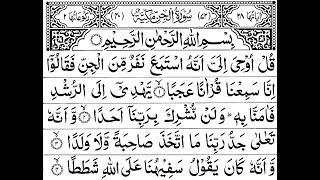 اٰیاتها ٢٨ (٧٢) سُوْرَةُ الْجِنِّ مَكِّيَّةٌ (٤٠) رکوعاتها ٢
بِسْمِ اللّٰهِ الرَّحْمٰنِ الرَّحِيْمِ
قُلْ اُوْحِيَ اِلَيَّ اَنَّهُ اسْتَمَعَ نَفَرٌ مِّنَ الْجِنِّ فَقَالُوْٓا
اِنَّا سَمِعْنَا قُرْاٰنًا عَجَبًا ۙ يَّهْدِيْٓ اِلَى الرُّشْدِ
فَاٰمَنَّا بِهٖ ؕ وَلَنْ نُّشْرِكَ بِرَبِّنَآ اَحَدًا ۙ وَّاَنَّهٗ
تَعٰلٰى جَدُّ رَبِّنَا مَا اتَّخَذَ صَاحِبَةً وَّلَا وَلَدًا ۙ
وَّاَنَّهٗ كَانَ يَقُوْلُ سَفِيْهُنَا عَلَى اللّٰهِ شَطَطًا ۙ